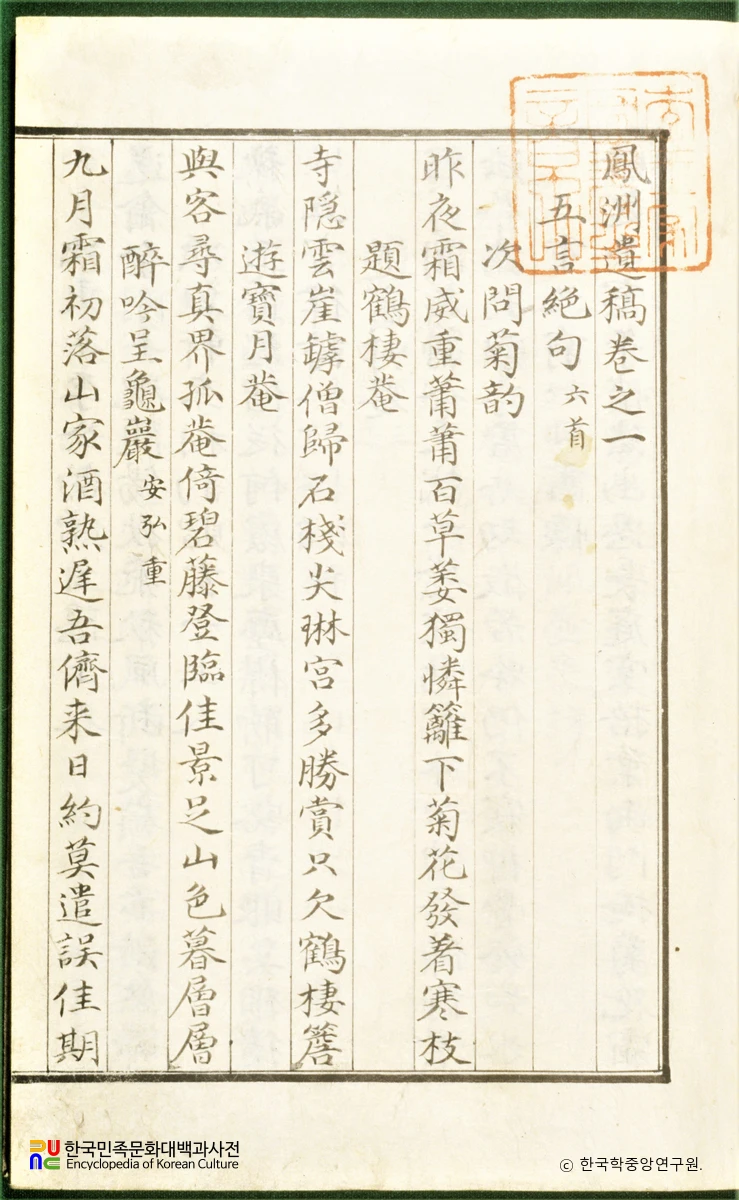 鳳洲遺稿卷之一
五言絶句 六首
次問菊韵
昨夜霜威重蕭蕭百草萎獨憐籬下菊花發着寒枝
題鶴棲菴
寺隐雲崖罅僧歸石棧尖琳宮多勝賞只欠鶴棲簷
遊寶月菴
與客尋真界孤菴倚碧藤登臨佳景足山色暮層層
醉吟呈龜巖 安弘重
九月霜初落山家酒熟遲吾儕来日約莫遣誤佳期
한국민족문화대백과사전
Encyclopedia of Korean Culture
© 한국학중앙연구원.